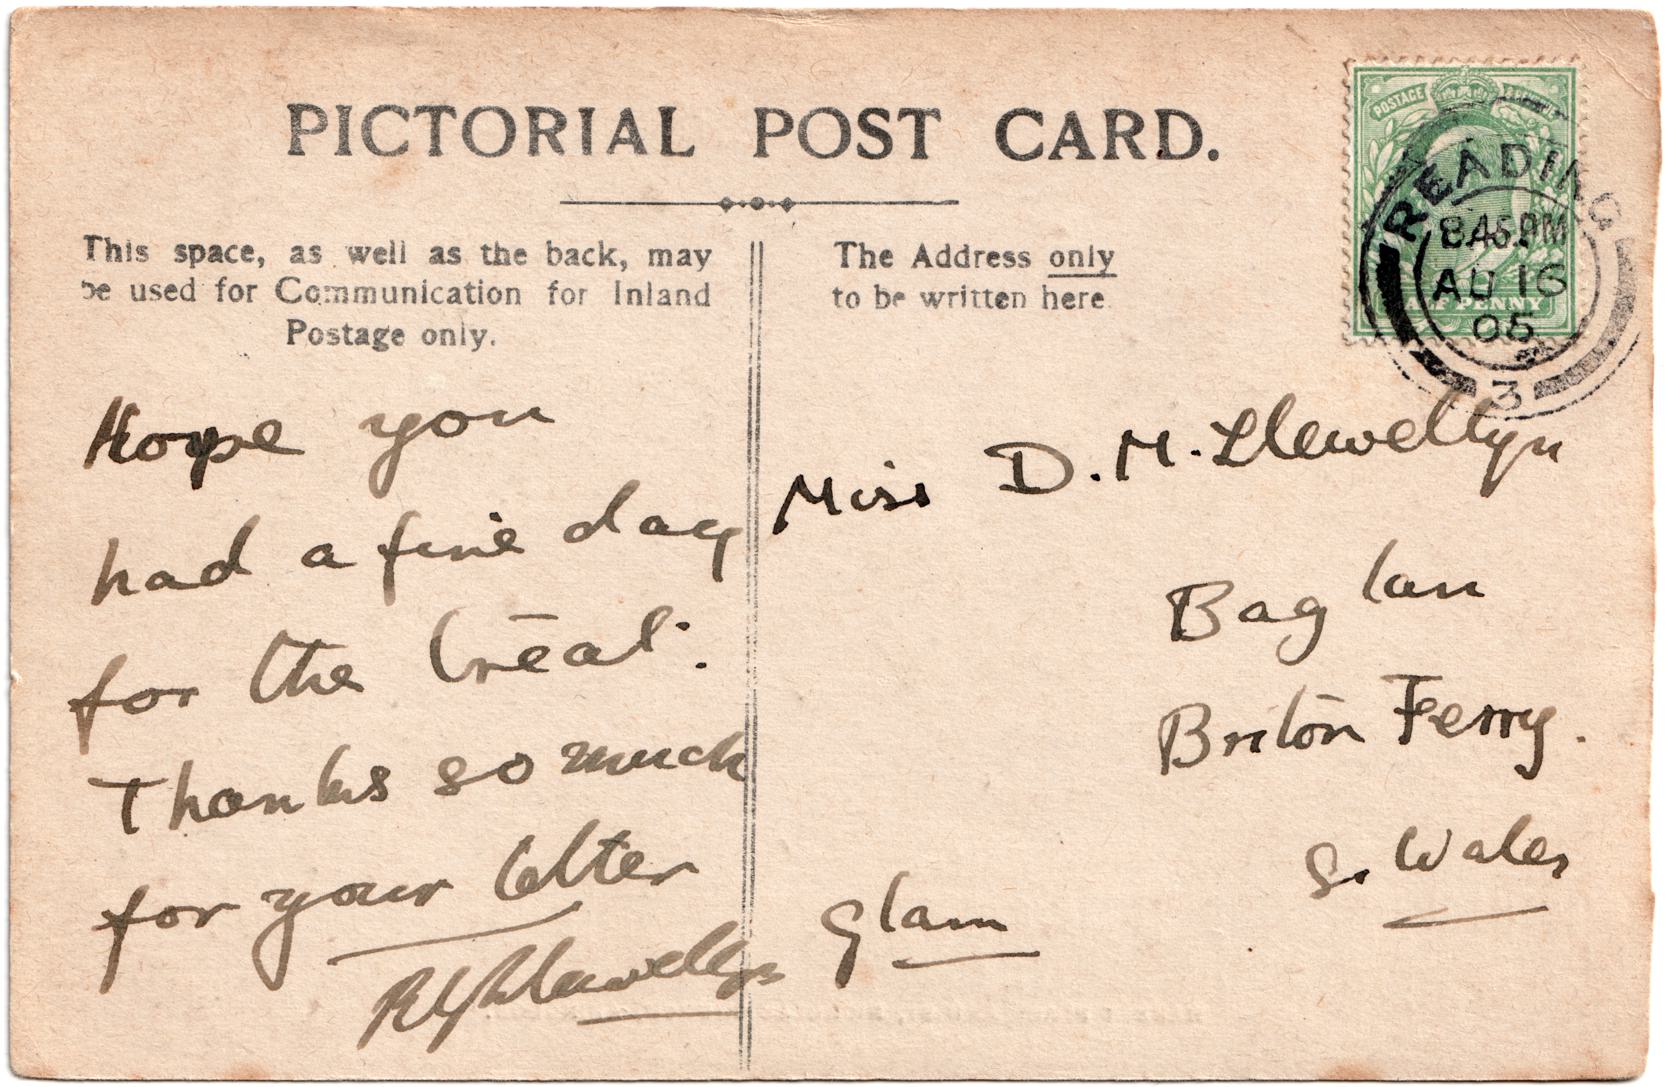 PICTORIAL POST CARD.
This space, as well as the back, may
be used for Communication for Inland
Postage only.
The Address only
to be written here.
POSTAGE
HALF PENNY
READING
8.45 PM
AU 16
05
3
Hope you
had a fine day
for the treat.
Thanks so much
for your letter
Llewellyn
Miss D. M. Llewellyn
Baglan
Briton Ferry.
S. Wales
Glam